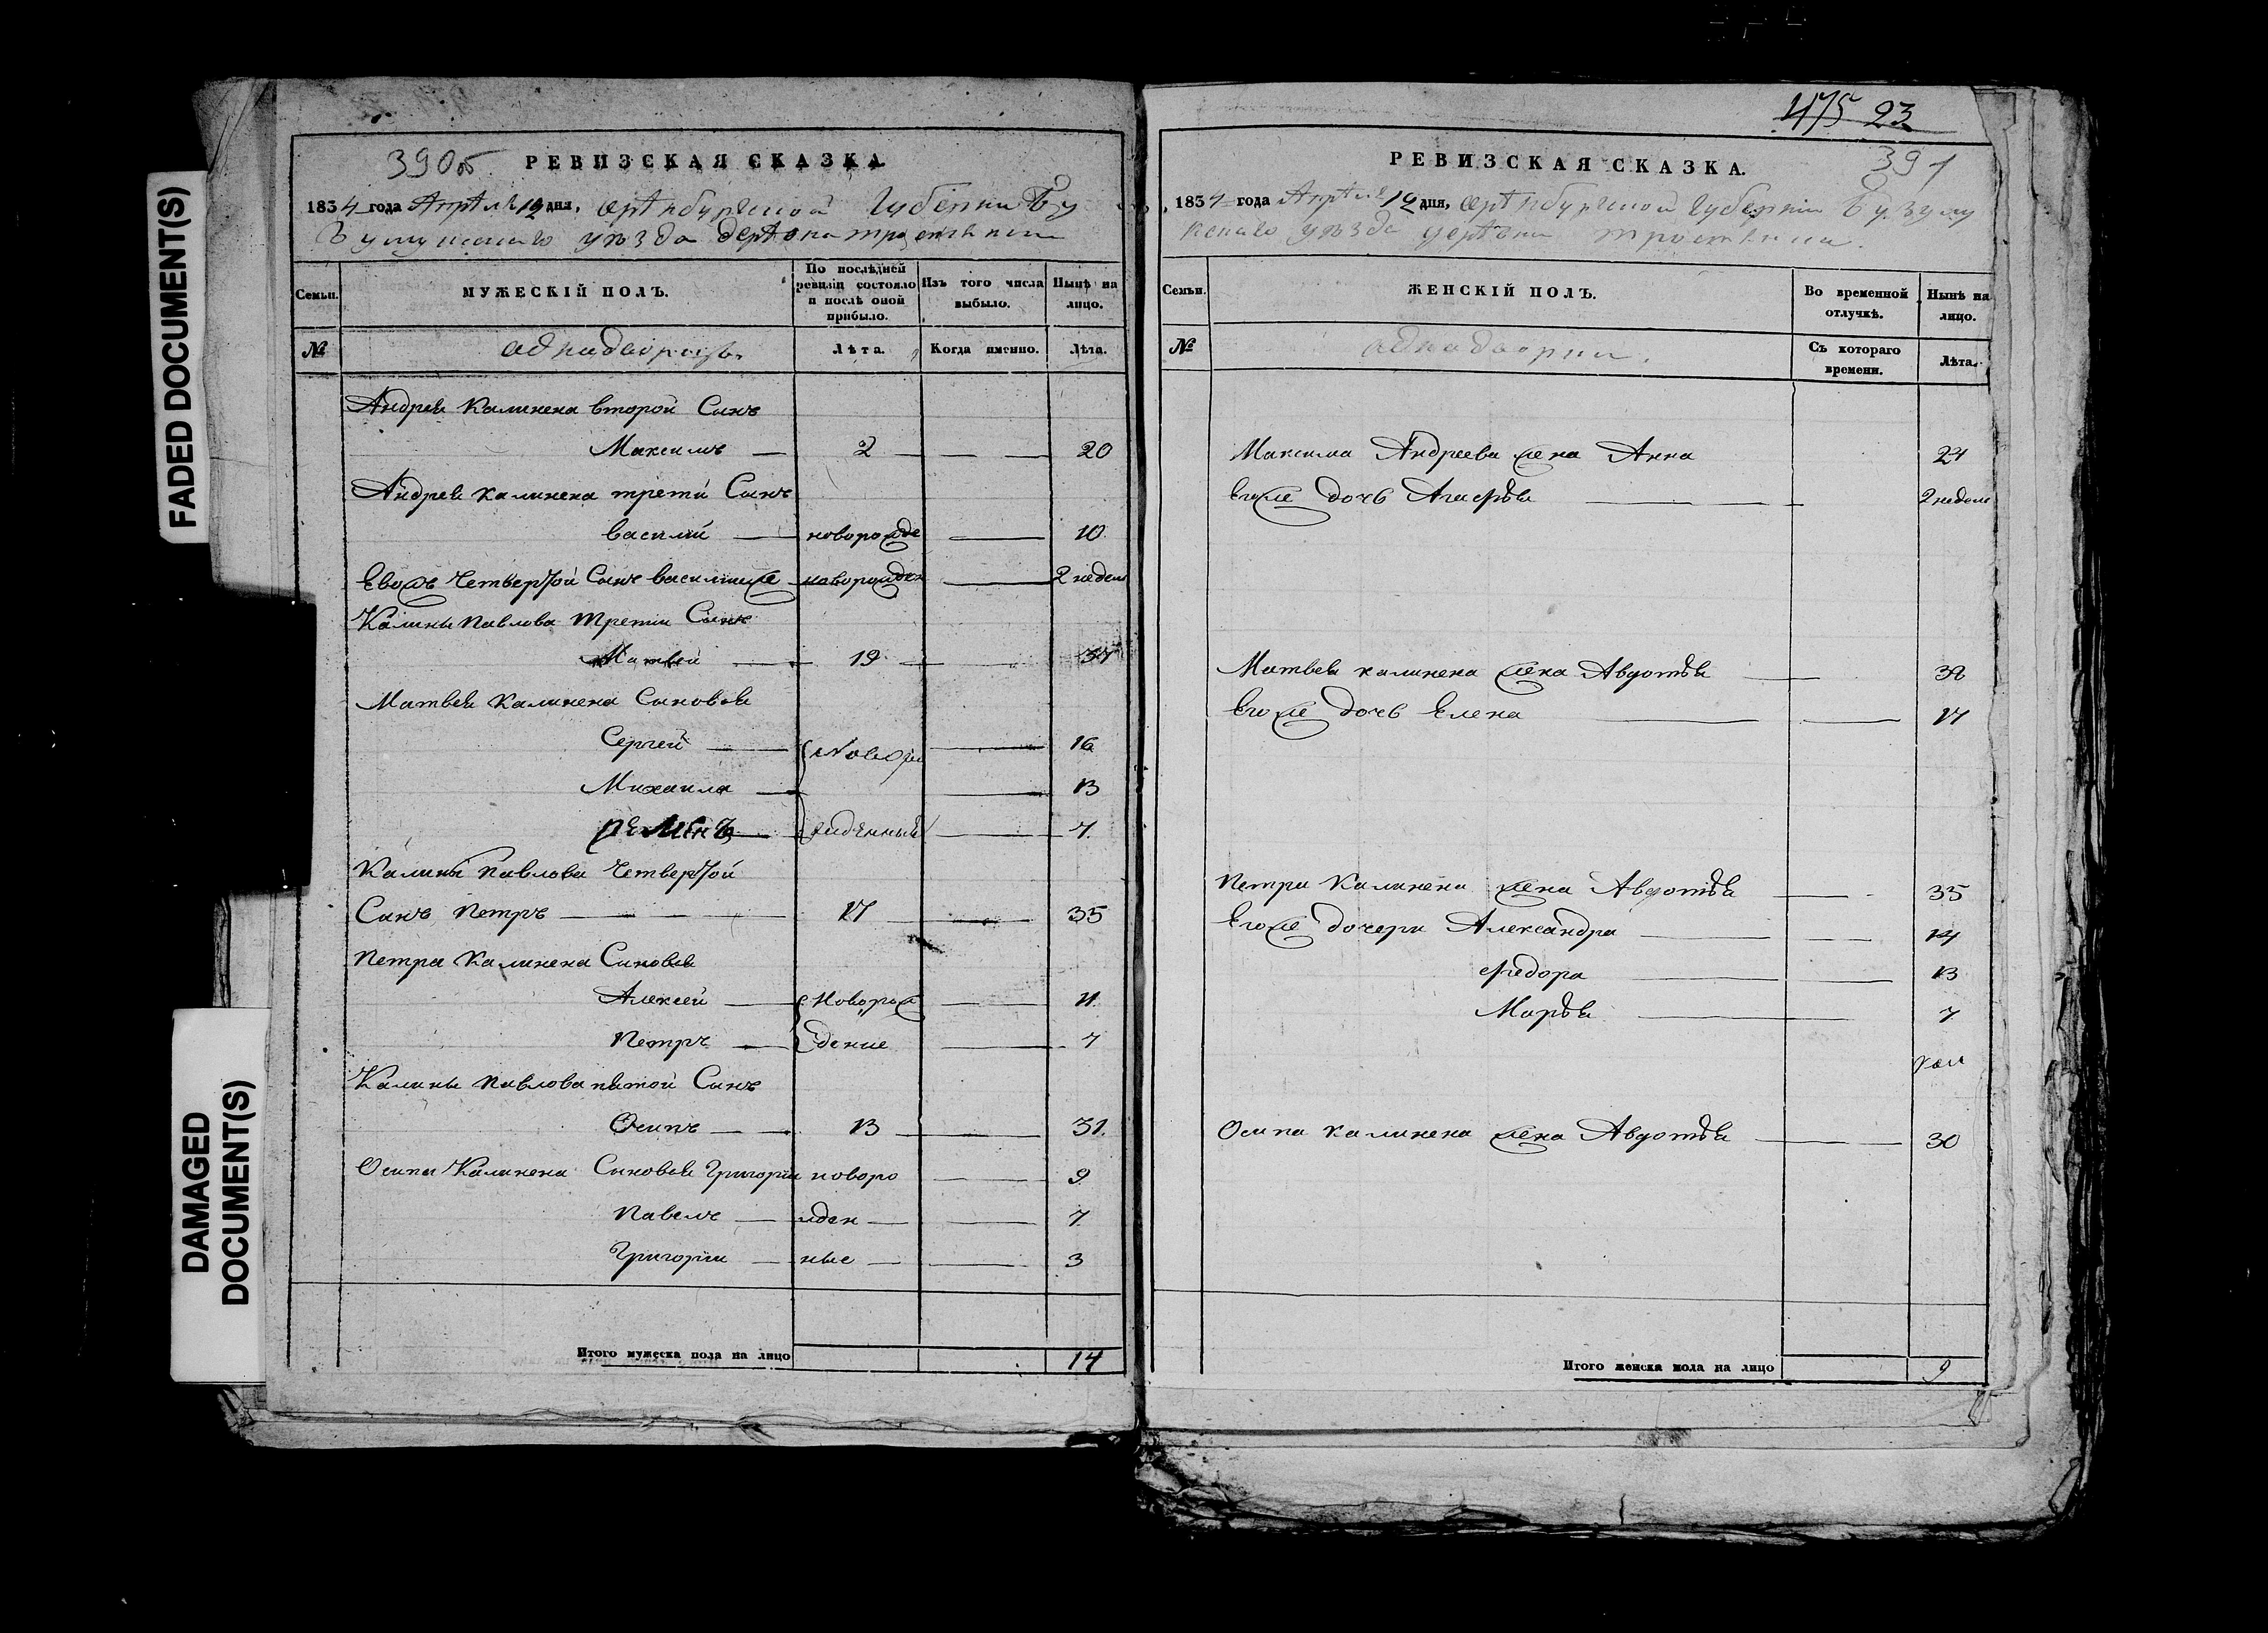 FADED DOCUMENT(S)
DAMAGED DOCUMENT(S)
390об. РЕВИЗСКАЯ СКАЗКА
1834 года Апреля 12 дня, Оренбургской Губернии Бу
зулукскаго уезда деревни
Семьи. МУЖЕСКІЙ ПОЛЪ. По послѣдней ревизіи состояло и послѣ оной прибыло. Изъ того числа выбыло. Нынѣ на лицо.
№ Лѣта. Когда именно. Лѣта.
Андрея Калинена второй Сынъ
Максимъ 2 20
Андрея Калинена трети Сынъ
Василий новорожде 10
Евожъ Четвертой Сынъ Василиже новорожден 2 недели
Калины Павлова Трети Сынъ
Матвей 19 37
Матвея Калинена Сыновья
Сергей Новорож 16
Михаила 13
Семенъ денные 7
Калины Павлова Четвертой
Сынъ Петръ 17 35
Петра Калинена Сыновья
Алексей Новорож 11
Петръ дение 7
Калины Павлова пятой Сынъ
Осипъ 13 31
Осипа Калинена Сыновья Григории новоро 9
Павелъ жден 7
Григории ные 3
Итого мужеска пола на лицо 14
475 23
РЕВИЗСКАЯ СКАЗКА. 391
1834 года Апреля 12 дня, Оренбургской Губернии Бузулу
кскаго уезда деревни
Семьи. ЖЕНСКІЙ ПОЛЪ. Во временной отлучкѣ. Нынѣ на лицо.
№ Съ котораго времени. Лѣта.
Максима Андреева жена Анна 24
Егоже дочь 2 недели
Матвея Калинена жена Авдотья 38
Егоже дочь Елена 17
Петра Калинена жена Авдотья 35
Егоже дочери Александра 14
Федора 13
Марья 7
Осипа Калинена жена Авдотья 30
Итого женска пола на лицо 9